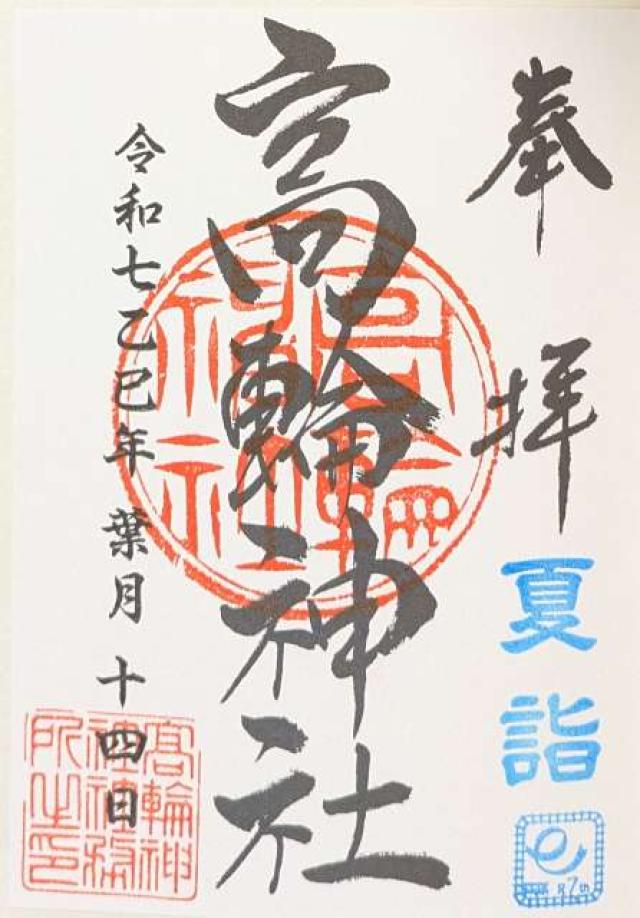 奉拝
夏詣
髙輪神社
令和七乙巳年 葉月 十四日
髙輪神
社神社務
所之印